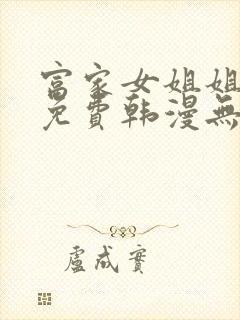 富家女姐姐
免費韩漫無
盧成實